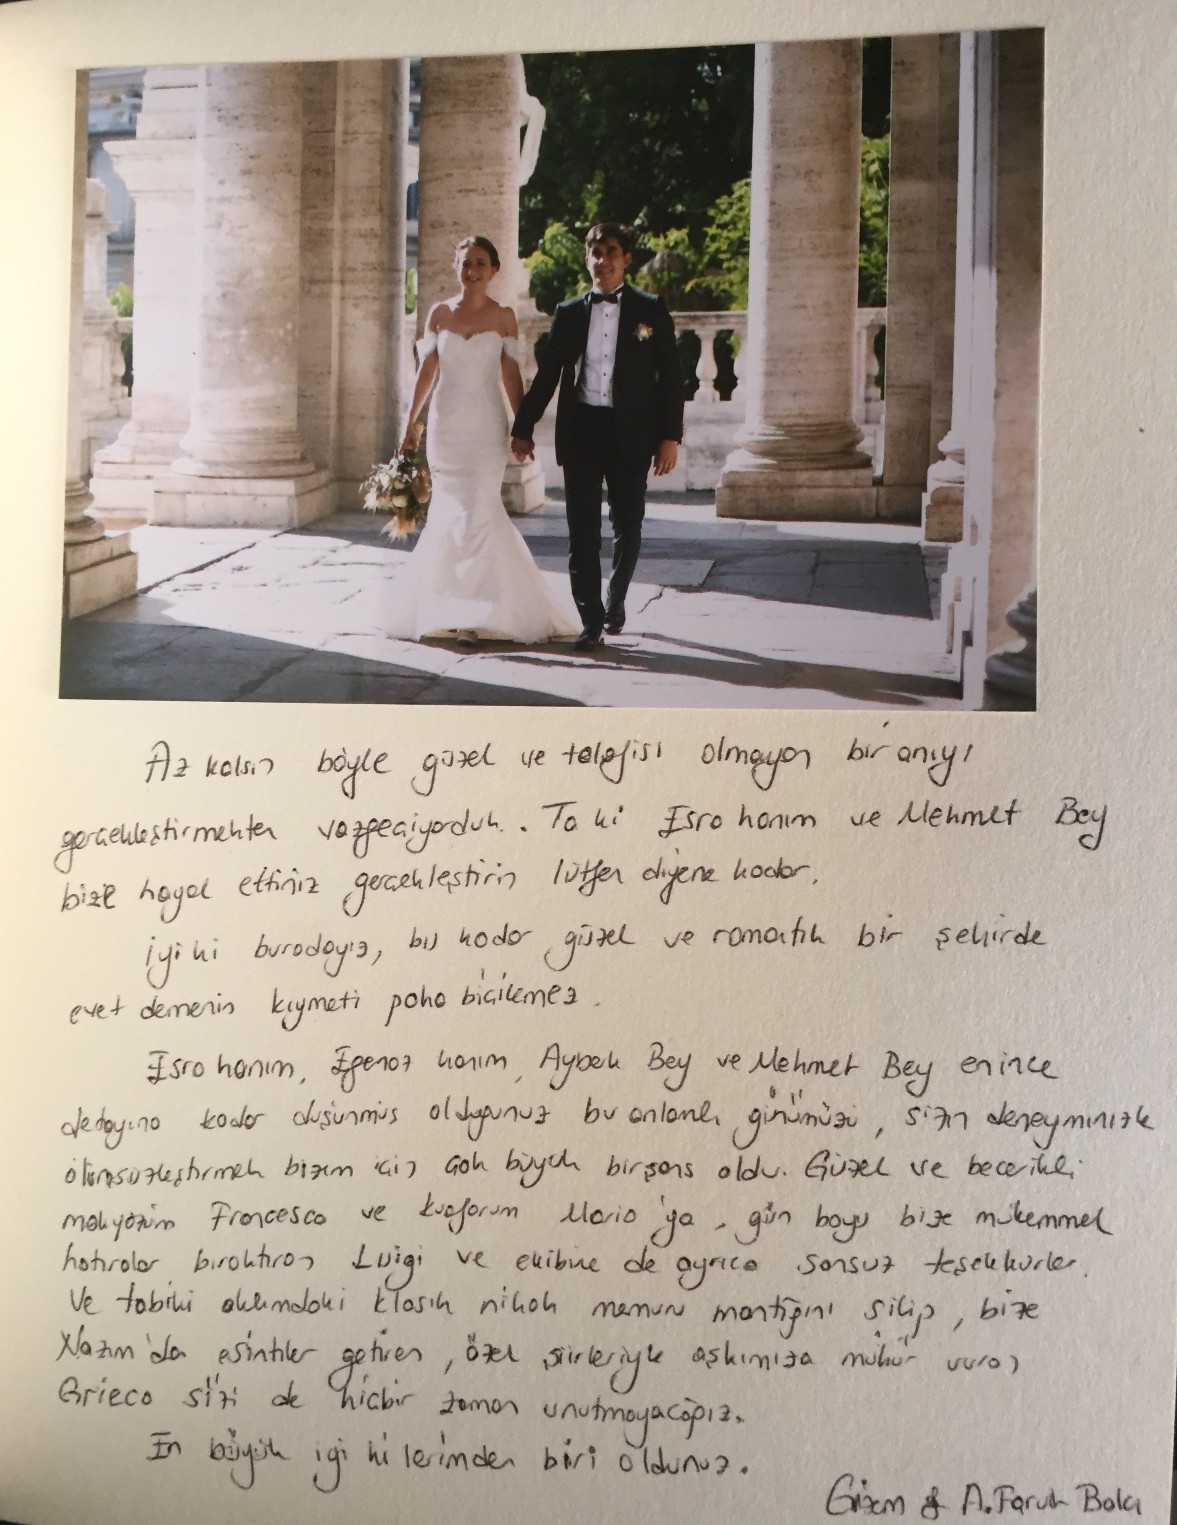 Az kalsın böyle güzel ve telafisi olmayan bir anıyı
gerçekleştirmekten vazgeçiyorduk. Ta ki Esra hanım ve Mehmet Bey
bize hayal ettiniz gerçekleştirin lütfen diyene kadar.
İyi ki buradayız, bu kadar güzel ve romantik bir şehirde
evet demenin kıymeti paha biçilemez.
Esra hanım, Egenaz hanım, Aybek Bey ve Mehmet Bey en ince
detayına kadar düşünmüş olduğunuz bu anlamlı günümüzü, sizin deneyminizle
ölümsüzleştirmek bizim için çok büyük bir şans oldu. Güzel ve becerikli
makyözüm Francesco ve kuaförüm Mario'ya, gün boyu bize mükemmel
hatıralar bıraktıran Luigi ve ekibine de ayrıca sonsuz teşekkürler.
Ve tabiki aklımdaki klasik nikah memuru mantığını silip, bize
Nazım'da esintiler getiren, özel şiirleriyle aşkımıza mühür vuran
Grieco sizi de hiçbir zaman unutmayacağız.
En büyük iyi ki lerimden biri oldunuz.
Gizem & A.Faruk Balcı